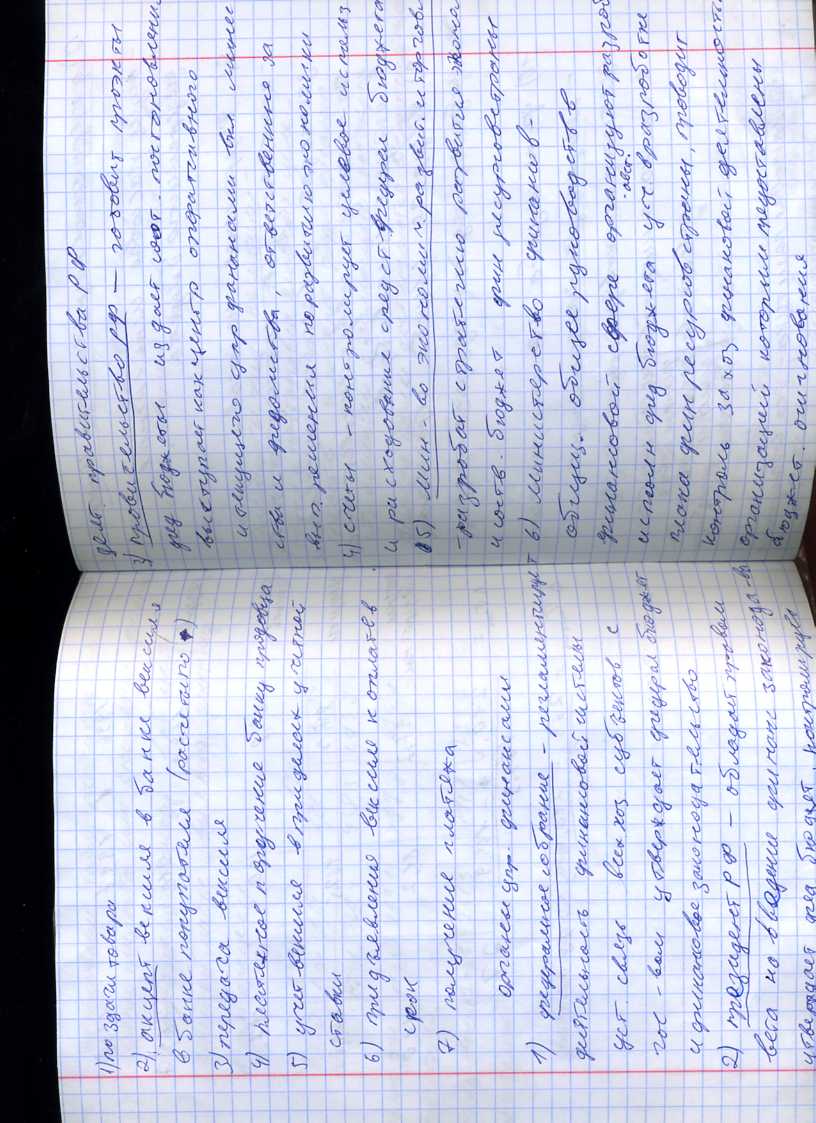 1) по здаги товара
2) акцепт векселя в банке векселя
в банке покупателя (расчетного
3) передача векселя
4) расчетное поручение банку продовца
5) учет векселя в приделах учетной
ставки
6) предъявление векселя к оплате в
срок
7) получение платежа
органы упр. финансами
1) федеральное собрание - регламентирует
деятельность финансовой системы
уст. связь всех хоз субъектов с
гос-вом утверждает федерал бюджет
и финансовое законодательство
2) президент РФ - обладает правом
вета на введение финанс законода-ва
утверждает фед бюджет, контролирует
деят правительства РФ
3) правительство РФ - готовит проэкты
фед бюджеты издает соот. постоновления
выступает как центр оперативного
и текущего упр финансами вкл минес
ства и ведомства, ответственные за
вып. решения по развитию экономики
4) счеты - контролирует целевое использ
и расходование средств федерал бюджета
5) Мин-во экономич. развит. и торговл
- разработ стратегию развития эконо
и соств. бюджет фин ресурсов страны
6) Министерство финансов -
общее руководств в
финансовой сфере организует разроб
исполн фед бюджета уч в разработке
плана фин ресурсов страны, проводит
контроль за хоз финансовой деятельность
организацией которым предоставлены
бюджет. осигнования